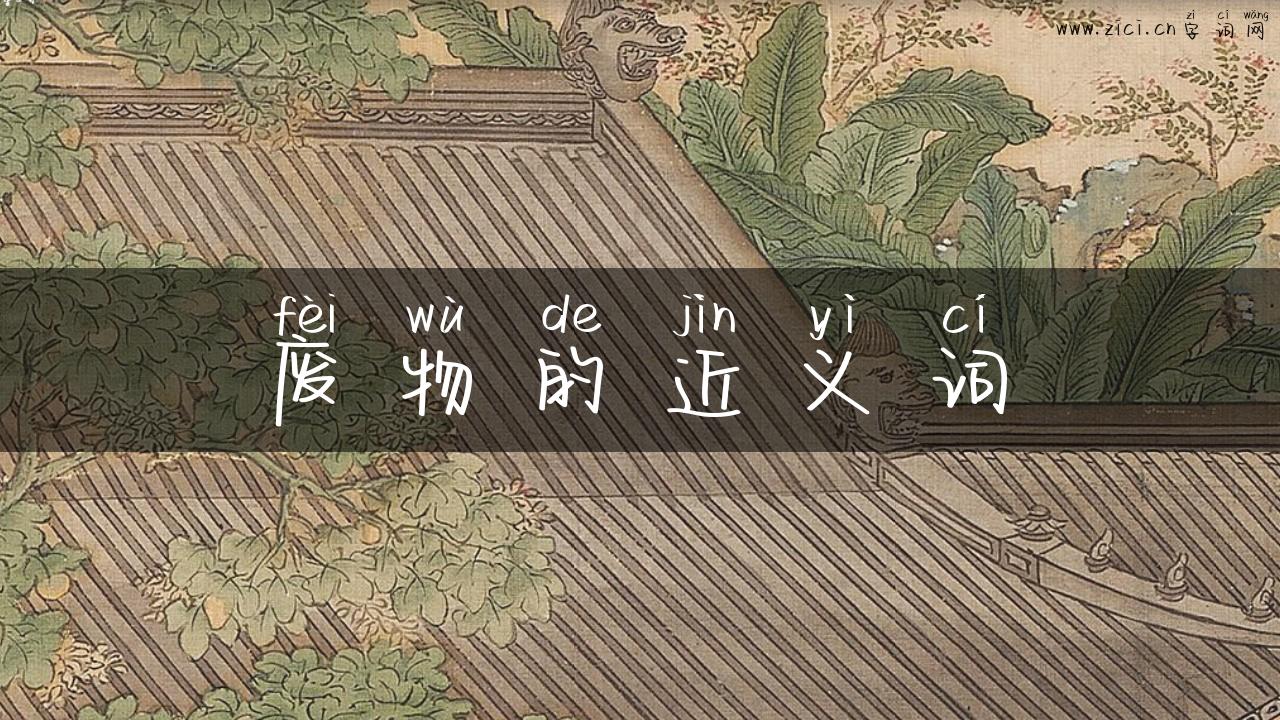 zì cí wǎng
www.zici.cn 字词网
fèi wù de jìn yì cí
废物的近义词